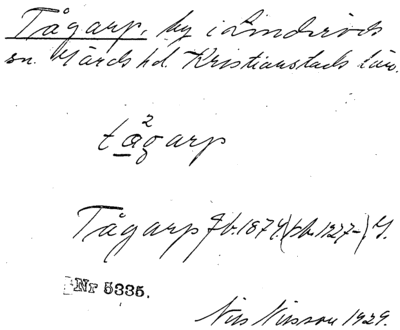 Tågarp, by i Linderöds
sn. Gärds hd. Kristianstads län.
tågarp
2
Tågarp Jb. 1874 (sb. 1227-) G.
Nr 5335.
Nils Nilsson 1929.